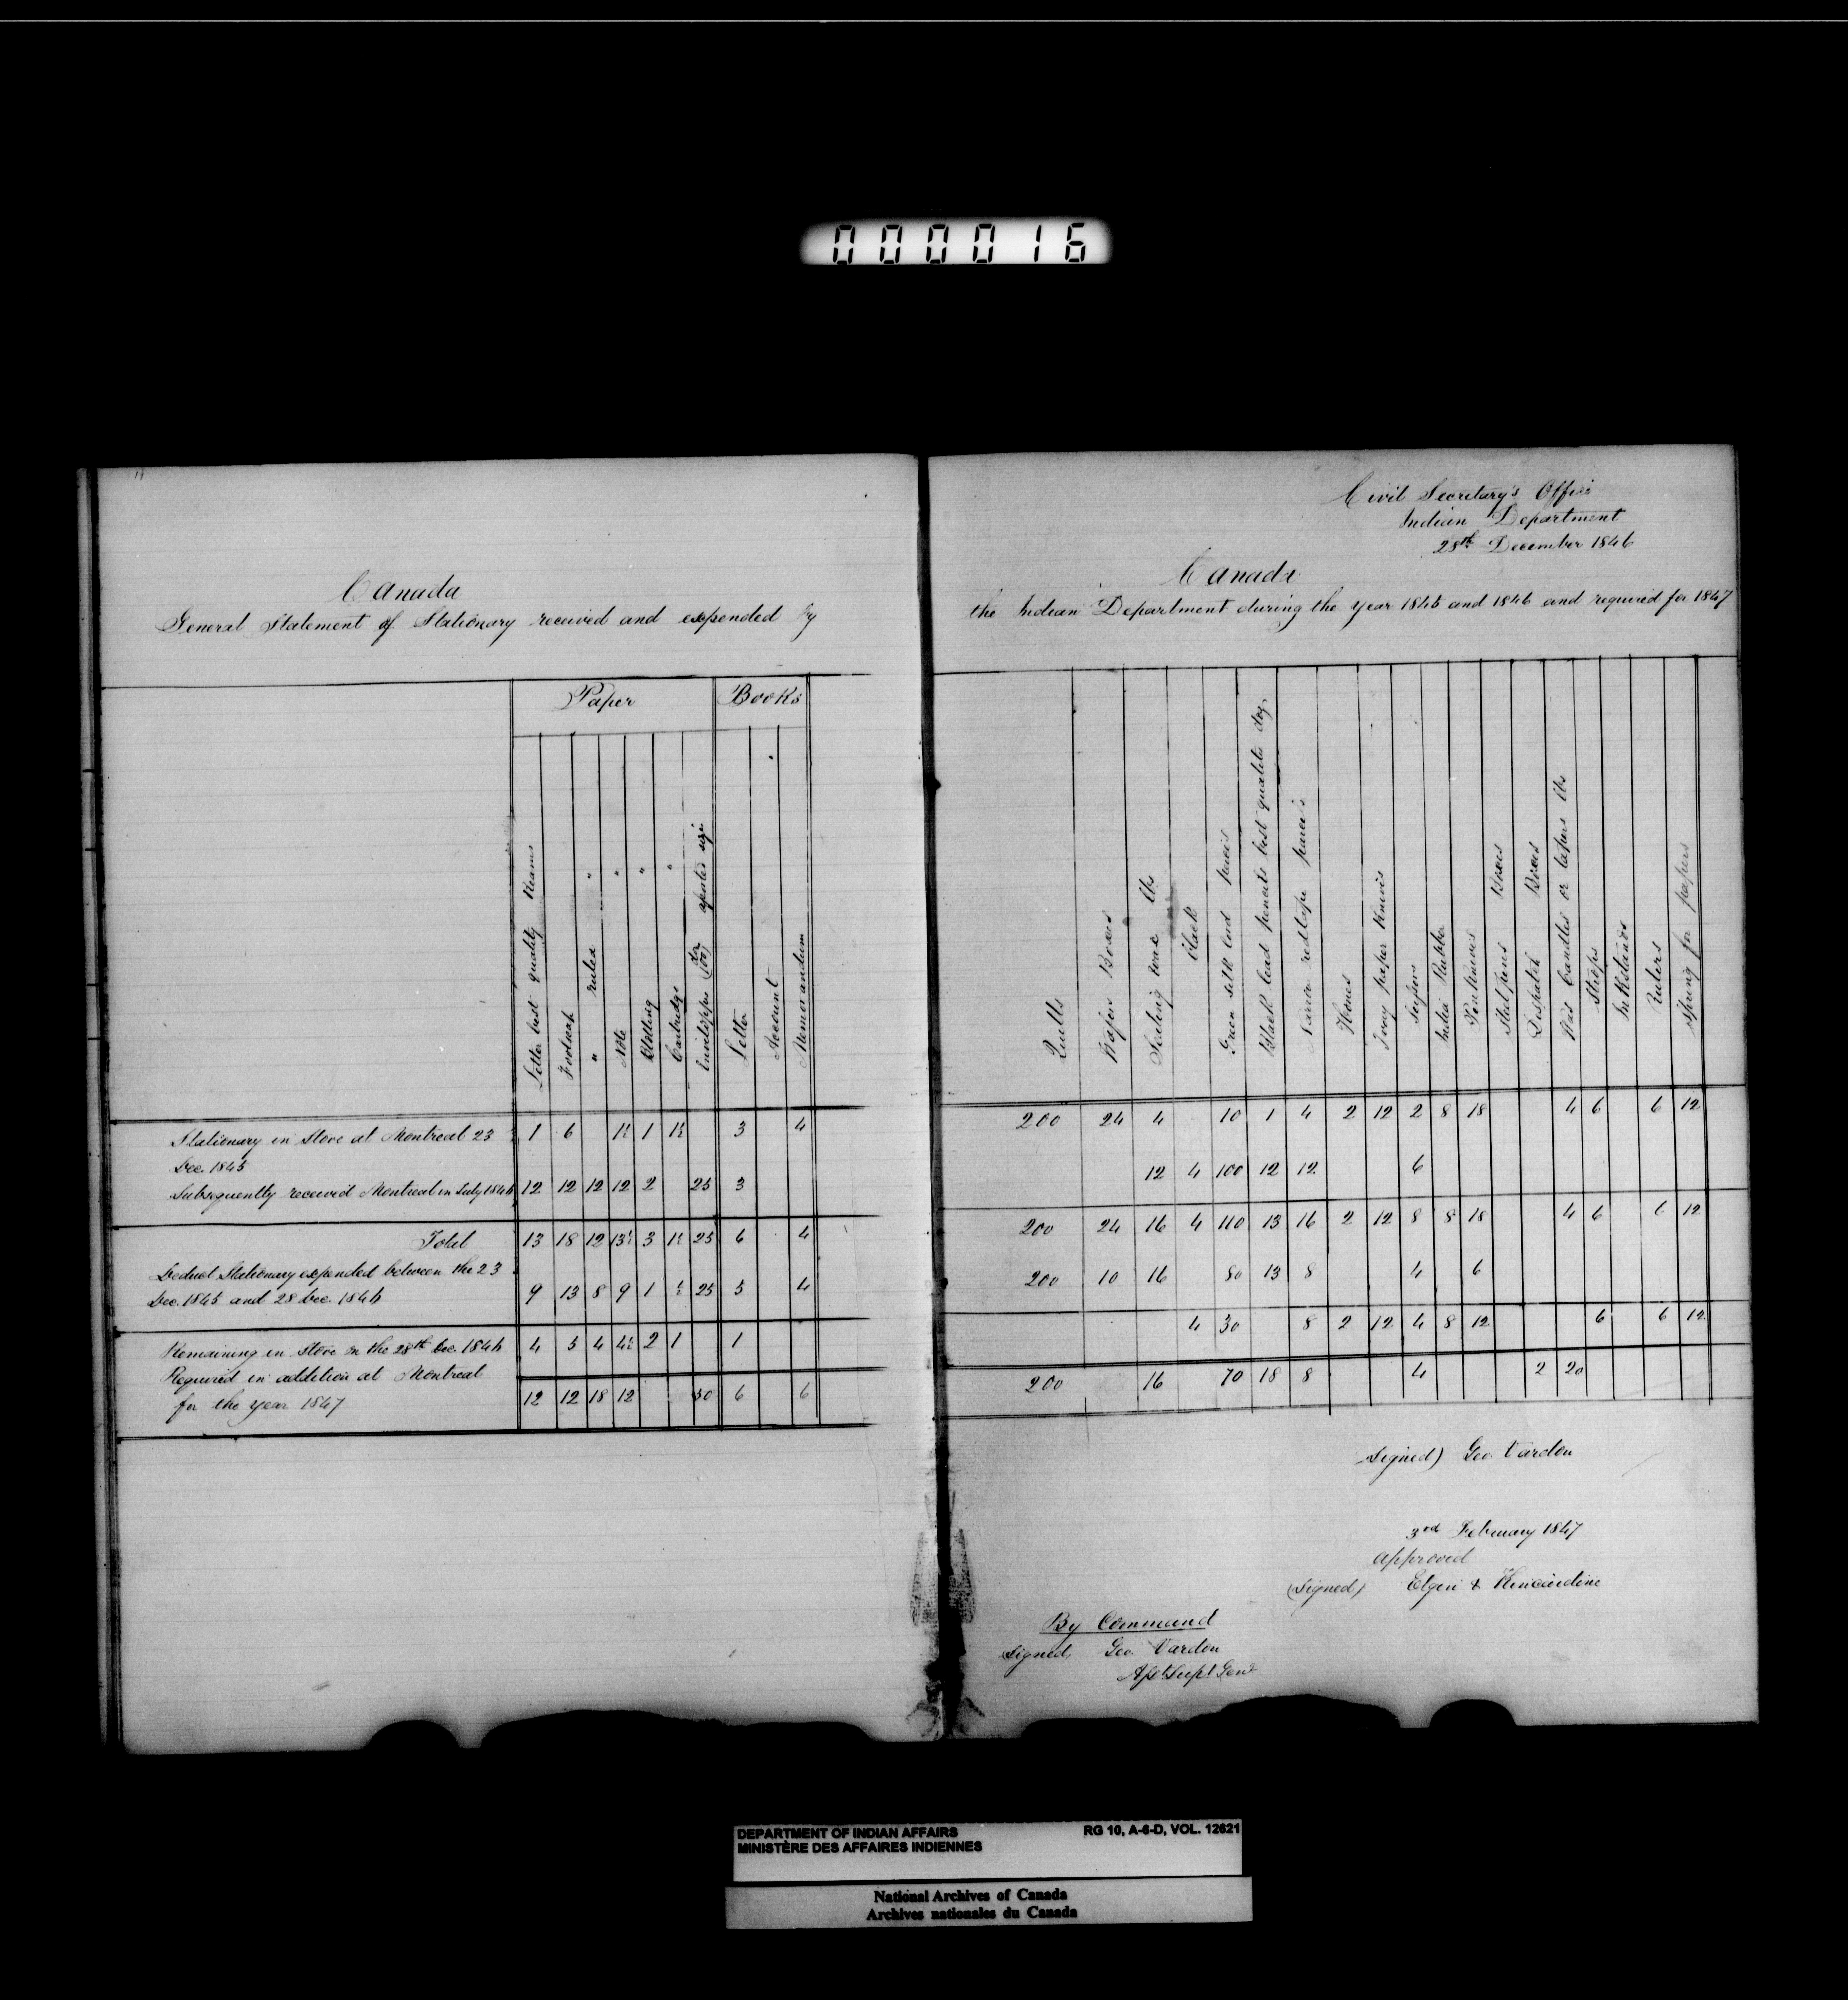 000016
Canada
General Statement of Stationary received and expended by
Paper
Books
Letter best quality Reams
Foolscap
" ruled "
Note "
Blotting "
Cartridge "
Envelopes (100) size
Letter
Account
Memorandum
Stationary in Store at Montreal 23 1 6 1½ 1 1½ 3 4
Dec. 1845
Subsequently received Montreal in July 1846 12 12 12 12 2 25 3
Total 13 18 12 13½ 3 1½ 25 6 4
Deduct Stationary expended between the 23
Dec. 1845 and 28 Dec. 1846 9 13 8 9 1 ½ 25 5 4
Remaining in Store on the 28th Dec. 1846 4 5 4 4½ 2 1 1
Required in addition at Montreal
for the year 1847 12 12 18 12 50 6 6
Civil Secretary's Office
Indian Department
28th December 1846
Canada
the Indian Department during the year 1845 and 1846 and required for 1847
Quills
Wafers Boxes
Sealing wax lbs
black
Green silk cord pieces
Black lead pencils best quality doz.
Narrow red tape pieces
Hones
Ivory paper Knives
Scissors
India Rubber
Penknives
Steel pens Boxes
Despatch Boxes
Wax Candles or tapers lbs
Strops
Inkstands
Rulers
spring for papers
200 24 4 10 1 4 2 12 2 8 18 4 6 6 12
12 4 100 12 12 6
200 24 16 4 110 13 16 2 12 8 8 18 4 6 6 12
200 10 16 80 13 8 4 6
4 30 8 2 12 4 8 12 6 6 12
200 16 70 18 8 4 2 20
Signed) Geo. Vardon
3rd February 1847
Approved
(Signed) Elgin & Kincardine
By Command
Signed, Geo. Vardon
DEPARTMENT OF INDIAN AFFAIRS RG 10, A-6-D, VOL. 12621
MINISTÈRE DES AFFAIRES INDIENNES
National Archives of Canada
Archives nationales du Canada